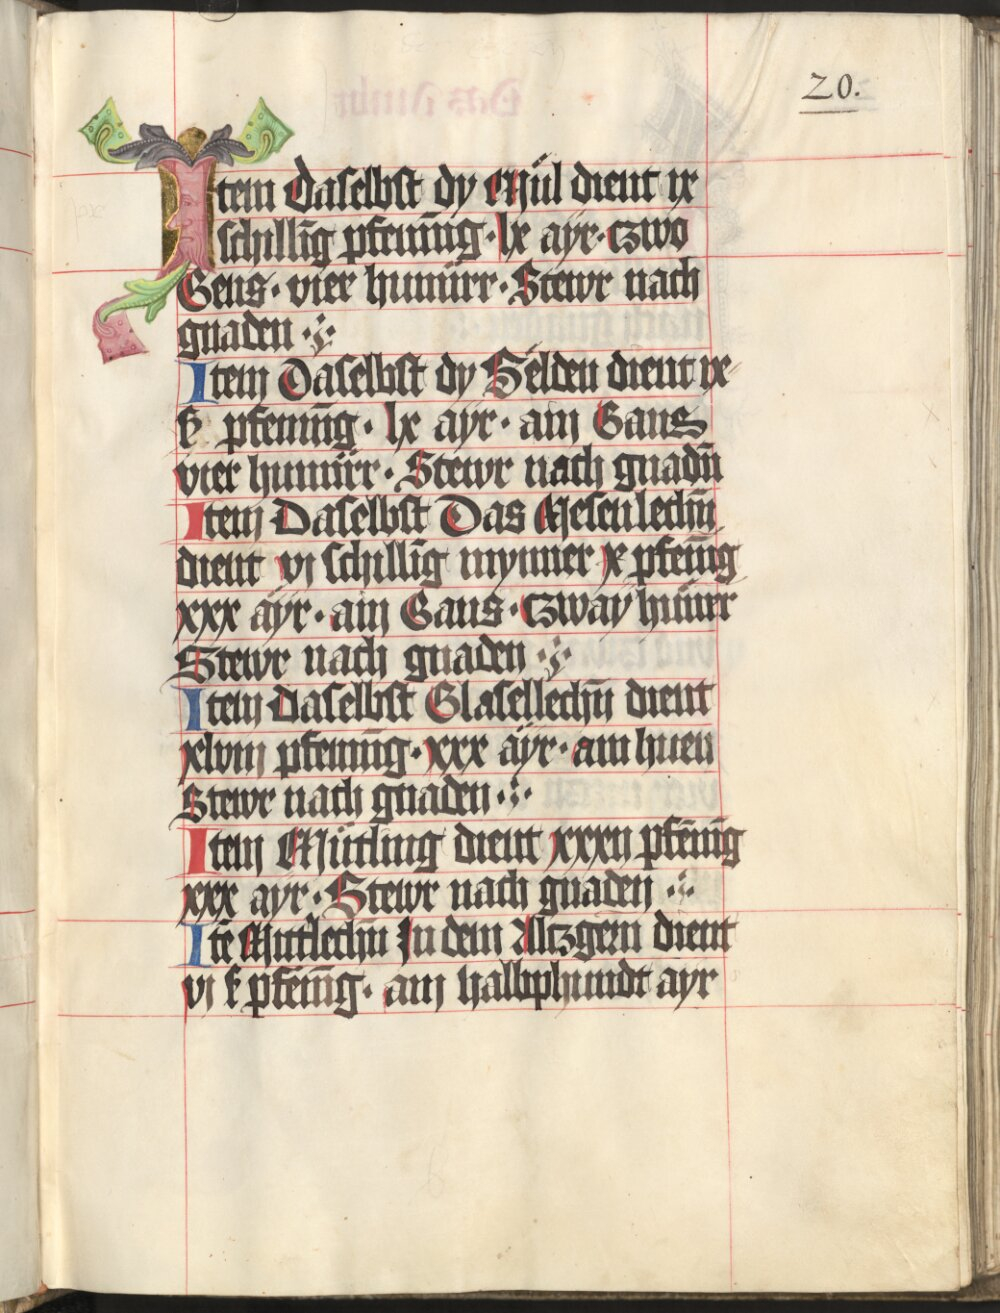 20.
Item Daselbst dy Mül dient ix
schilling pfening · lx ayr · czwo
Gens · vier hunürr · Stewr nach
gnaden ·:·
Item Daselbst dy Sëlden dient ix
ß pfening · lx ayr · ain Gans
vier hunürr · Stewr nach gnadn̄
Item Daselbst Das Mesenlechn̄
dient vj schillīg mynner x pfenīg
xxx äyr · ain Gans · czway hünrr
Stewr nach gnaden ·:·
Item Daselbst Glasellechn̄ dient
xlviij pfening · xxx äyr · ain huen
Stewr nach gnaden ·:·
Item Mütling dient xxxij pfēnīg
xxx ayr · Stewr nach gnaden ·:·
Itē Mutlechn̄ In dem Alczgern dient
vj ß pfenīg · ain halbphundt ayr